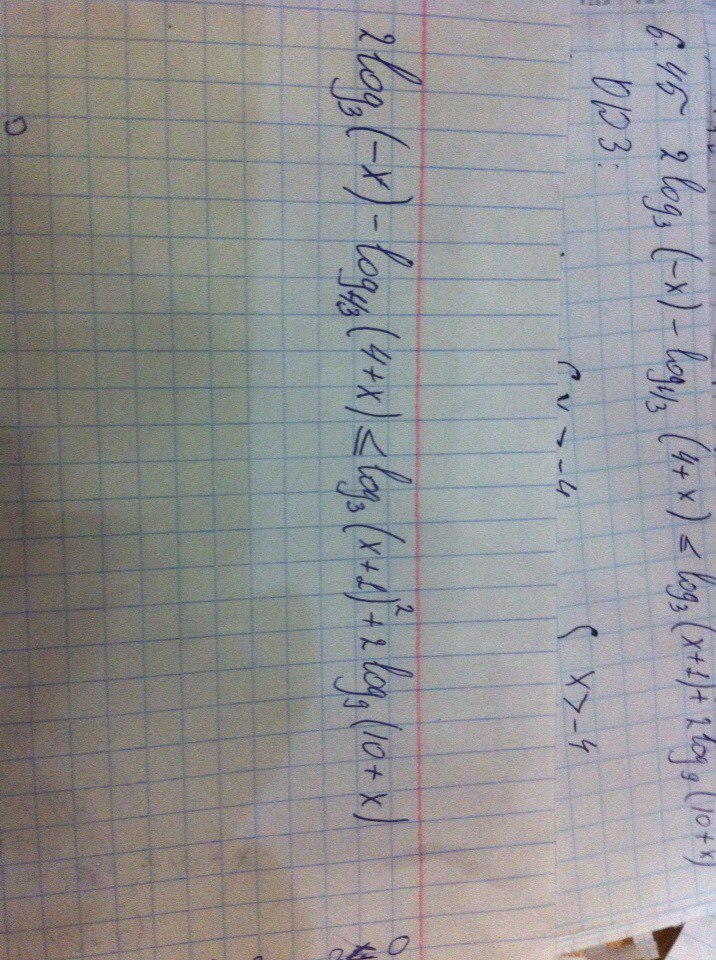 6.45 2log₃(-x) - log₁/₃(4+x) ≤ log₃(x+1) + 2log₉(10+x)
ОДЗ:
x > -4 { x > -4
2log₃(-x) - log₁/₃(4+x) ≤ log₃(x+1)² + 2log₉(10+x)